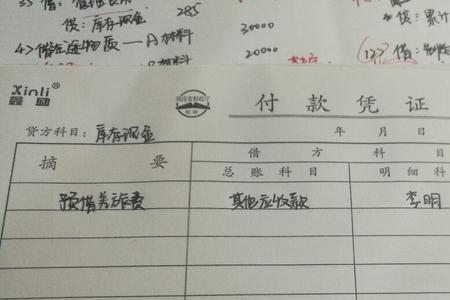 285
贷：库存现金
30000
贷：累计
4> 借：在途物资—A材料
20000
(12) 借：制
材料
Xinli®
鑫
付款凭证
贷方科目：库存现金
年 月 日
摘要
借方科目
总账科目
明细科
预借差旅费
其他应收款
李明